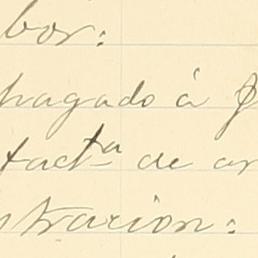 bor:
pagado á
factª de ar
stracion: